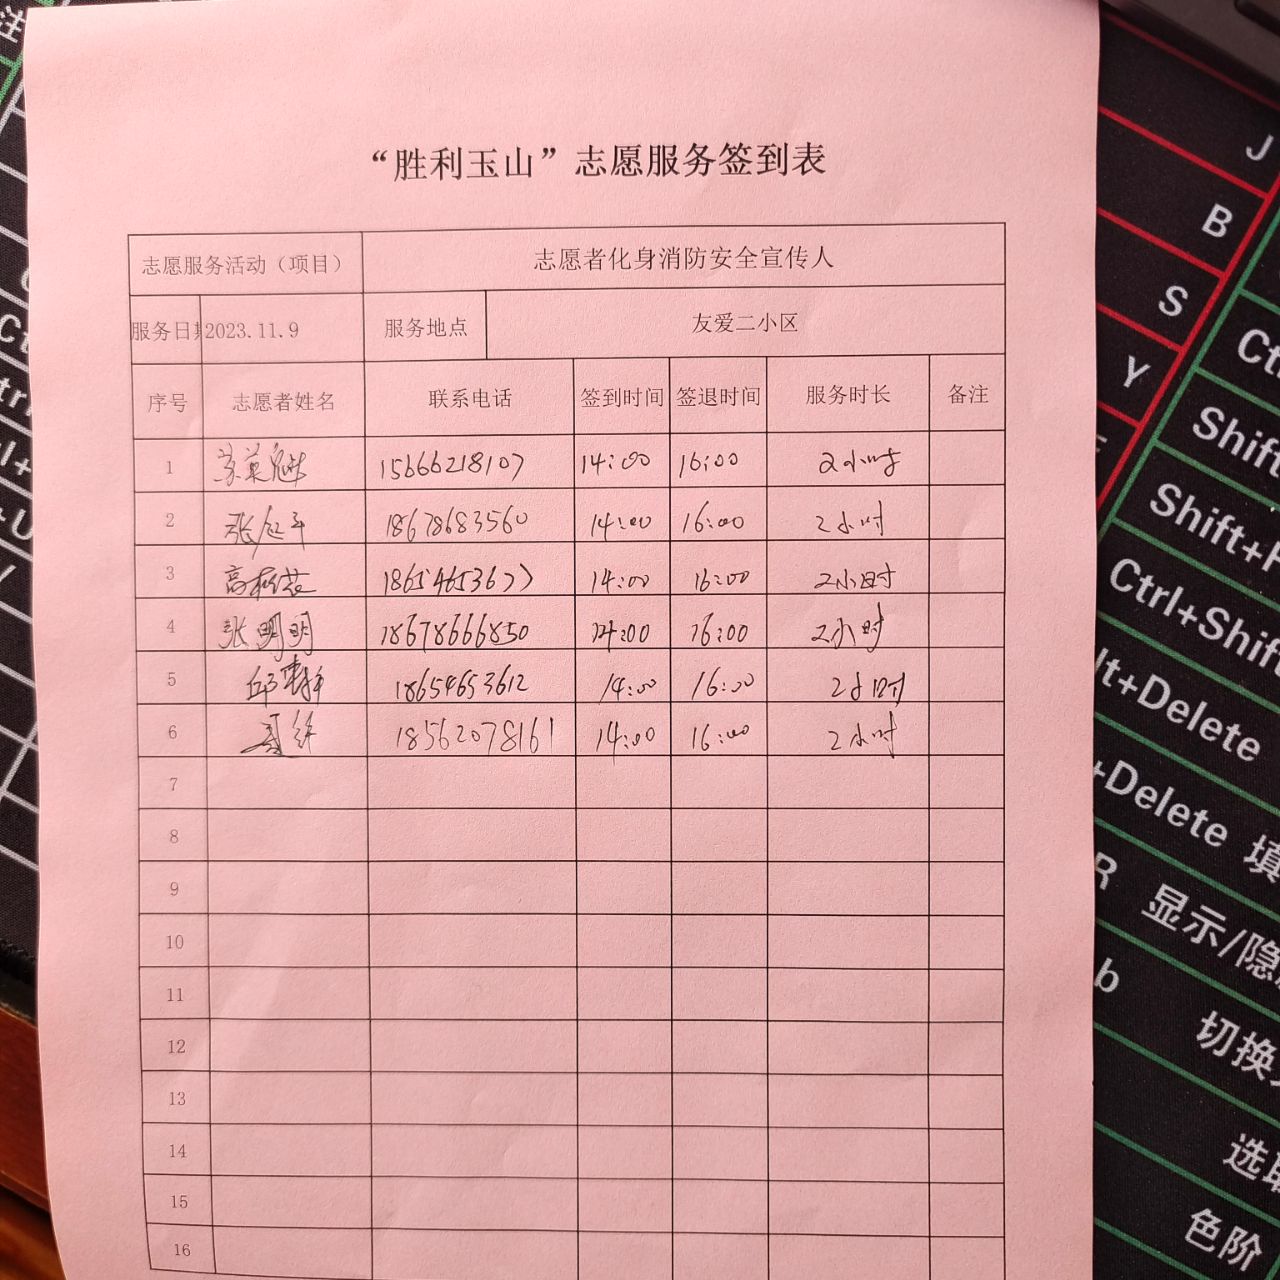 “胜利玉山”志愿服务签到表
志愿服务活动（项目） 志愿者化身消防安全宣传人
服务日期 2023.11.9 服务地点 友爱二小区
序号 志愿者姓名 联系电话 签到时间 签退时间 服务时长 备注
1 15666218107 14:00 16:00 2小时
2 18678683560 14:00 16:00 2小时
3 18654653677 14:00 16:00 2小时
4 张明明 18678666850 14:00 16:00 2小时
5 邱静 18654653612 14:00 16:00 2小时
6 18562078161 14:00 16:00 2小时
7
8
9
10
11
12
13
14
15
16
注
J
B
S
Y
Shift
Shift+F
Ctrl+Shif
lt+Delete
+Delete 填
R 显示/隐
b
切换
选取
色阶